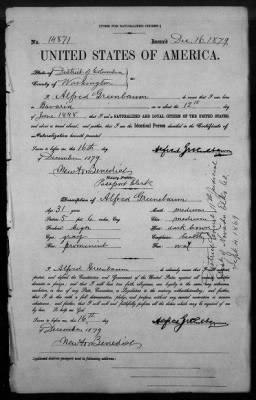 [FORM FOR NATURALIZED CITIZEN.]
No. 14871 Issued Dec. 16. 1879
UNITED STATES OF AMERICA.
State of District of Columbia
County of Washington
I Alfred Greenbaum do swear that I was born in
Bavaria on or about the 12th day
of June 1848, that I am a NATURALIZED AND LOYAL CITIZEN OF THE UNITED STATES
and about to travel abroad, and further, that I am the Identical Person described in the Certificate of
Naturalization herewith presented.
Sworn to before me this 16th
of December 1879
Passport Clerk
Description of Alfred Greenbaum
Age 31 years Mouth medium
Stature 5 feet 6 inches, Eng. Chin medium
Forehead high Hair dark brown
Eyes gray Complexion healthy
Nose prominent Face oval
I Alfred Greenbaum do solemnly swear that I will support,
protect, and defend the Constitution and Government of the United States against all enemies, whether
domestic or foreign; and that I will bear true faith, allegiance, and loyalty to the same, any ordinance,
resolution, or law of any State, Convention, or Legislature to the contrary notwithstanding; and further,
that I do this with a full determination, pledge, and purpose, without any mental reservation or evasion
whatsoever; and further, that I will well and faithfully perform all the duties which may be required of me
by law. So help me God.
Sworn to before me this 16th
of December 1879
Sept 4. 1869